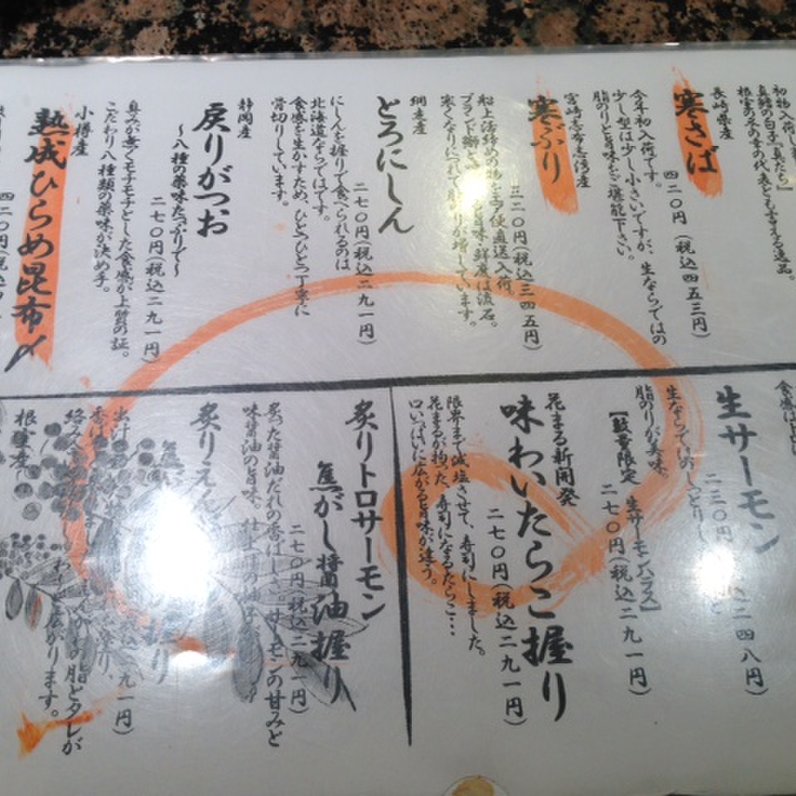 初物入荷し
真鱈の白子「真だち」
根室の冬の季の代表とも言える逸品。
長崎県産
寒さば
四二〇円(税込四五三円)
今年初入荷です。
少し型は少し小さいですが、生ならではの
脂のりと旨味をご堪能下さい。
宮崎志布志湾産
寒ぶり
三二〇円(税込三四五円)
船上活〆
ブランド鰤
寒くなるにつれて
増しています。
網走産
とろにしん
二七〇円(税込二九一円)
にしんを握りで食べられるのは
北海道ならではです。
食感を生かすため、ひとつひとつ丁寧に
骨切りしています。
静岡産
戻りがつお
〜八種の薬味たっぷりで〜
二七〇円(税込二九一円)
臭みが無くモチモチとした食感が上質の証。
こだわり八種類の薬味が決め手。
小樽産
熟成ひらめ昆布〆
四二〇円(税込
生サーモン
二三〇円
込二四八円)
生ならではのしっとり
脂のりが美味。
【数量限定 生サーモンハラス】
二七〇円(税込二九一円)
花まる新開発
味わいたらこ握り
二七〇円(税込二九一円)
限界まで減塩させて、寿司にしました。
花まるが拘った、寿司になるたらこ…
口いっぱいに広がる旨味が違う。
炙りトロサーモン
焦がし醤油握り
二七〇円(税込二九一円)
炙った醤油だれの香ばしさ。サーモンの甘みと
味醤油の旨味。
炙りえん
握り
込二九一円)
脂とタレが
広がります。
根室産